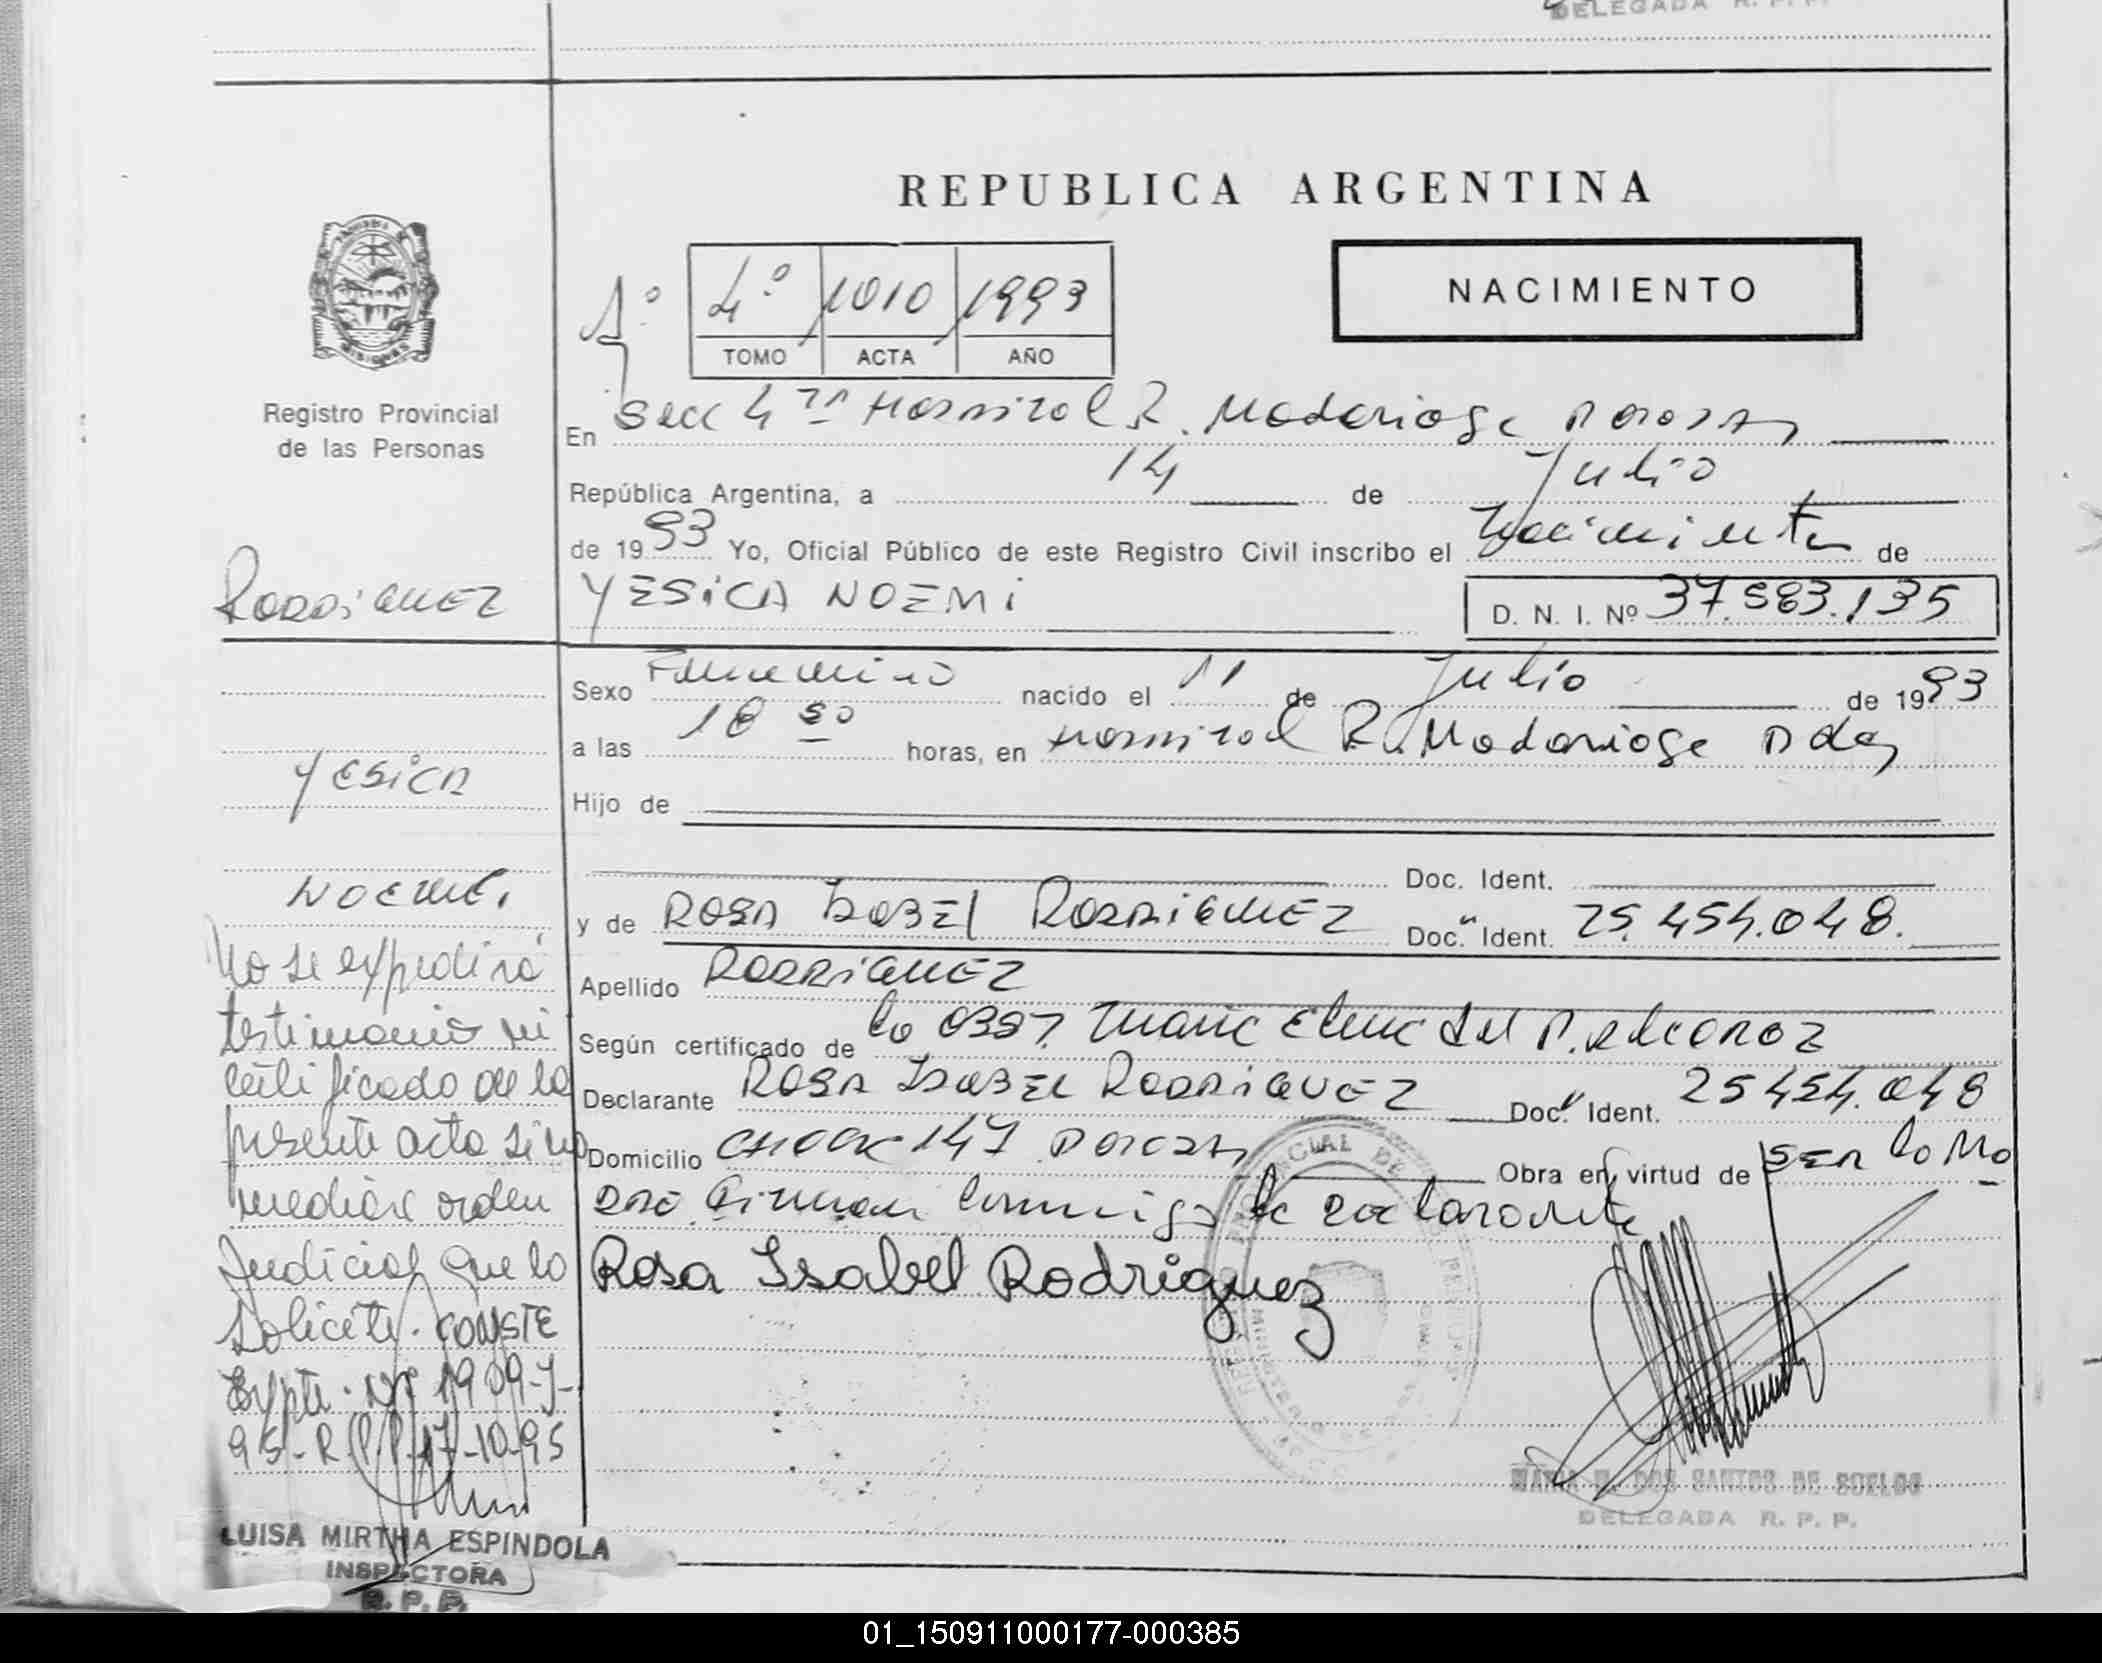 DELEGADA R. P. P.
REPUBLICA ARGENTINA
NACIMIENTO
4º 1010 1993
TOMO ACTA AÑO
Registro Provincial
de las Personas
En Secc 4 ta Hospital R. Madariaga Posadas
República Argentina, a 14 de Julio
de 1993 Yo, Oficial Público de este Registro Civil inscribo el Nacimiento de
YESICA NOEMI D. N. I. Nº 37.583.135
Sexo Femenino nacido el 11 de Julio de 1993
a las 18 50 horas, en Hospital R. Madariaga Pdas
Hijo de
Doc. Ident.
y de ROSA ISABEL RODRIGUEZ Doc. Ident. 25.454.048.
Apellido RODRIGUEZ
Según certificado de la Obst. Maria Elena del P. Alcaraz
Declarante ROSA ISABEL RODRIGUEZ Doc. Ident. 25454.048
Domicilio 147 Posadas Obra en virtud de SER la Ma
dre Firman conmigo la declarante
Rosa Isabel Rodriguez
MARIA DOS SANTOS DE SUELOS
DELEGADA R. P. P.
RODRIGUEZ
YESICA
NOEMI
No se expedirá
testimonio ni
certificado de la
presente acta si no
mediare orden
Judicial que lo
Solicite. CONSTE
Expte. Nº 1909-J-
95-R.P.P. 17-10-95
LUISA MIRTHA ESPINDOLA
INSPECTORA
R. P. P.
01_150911000177-000385